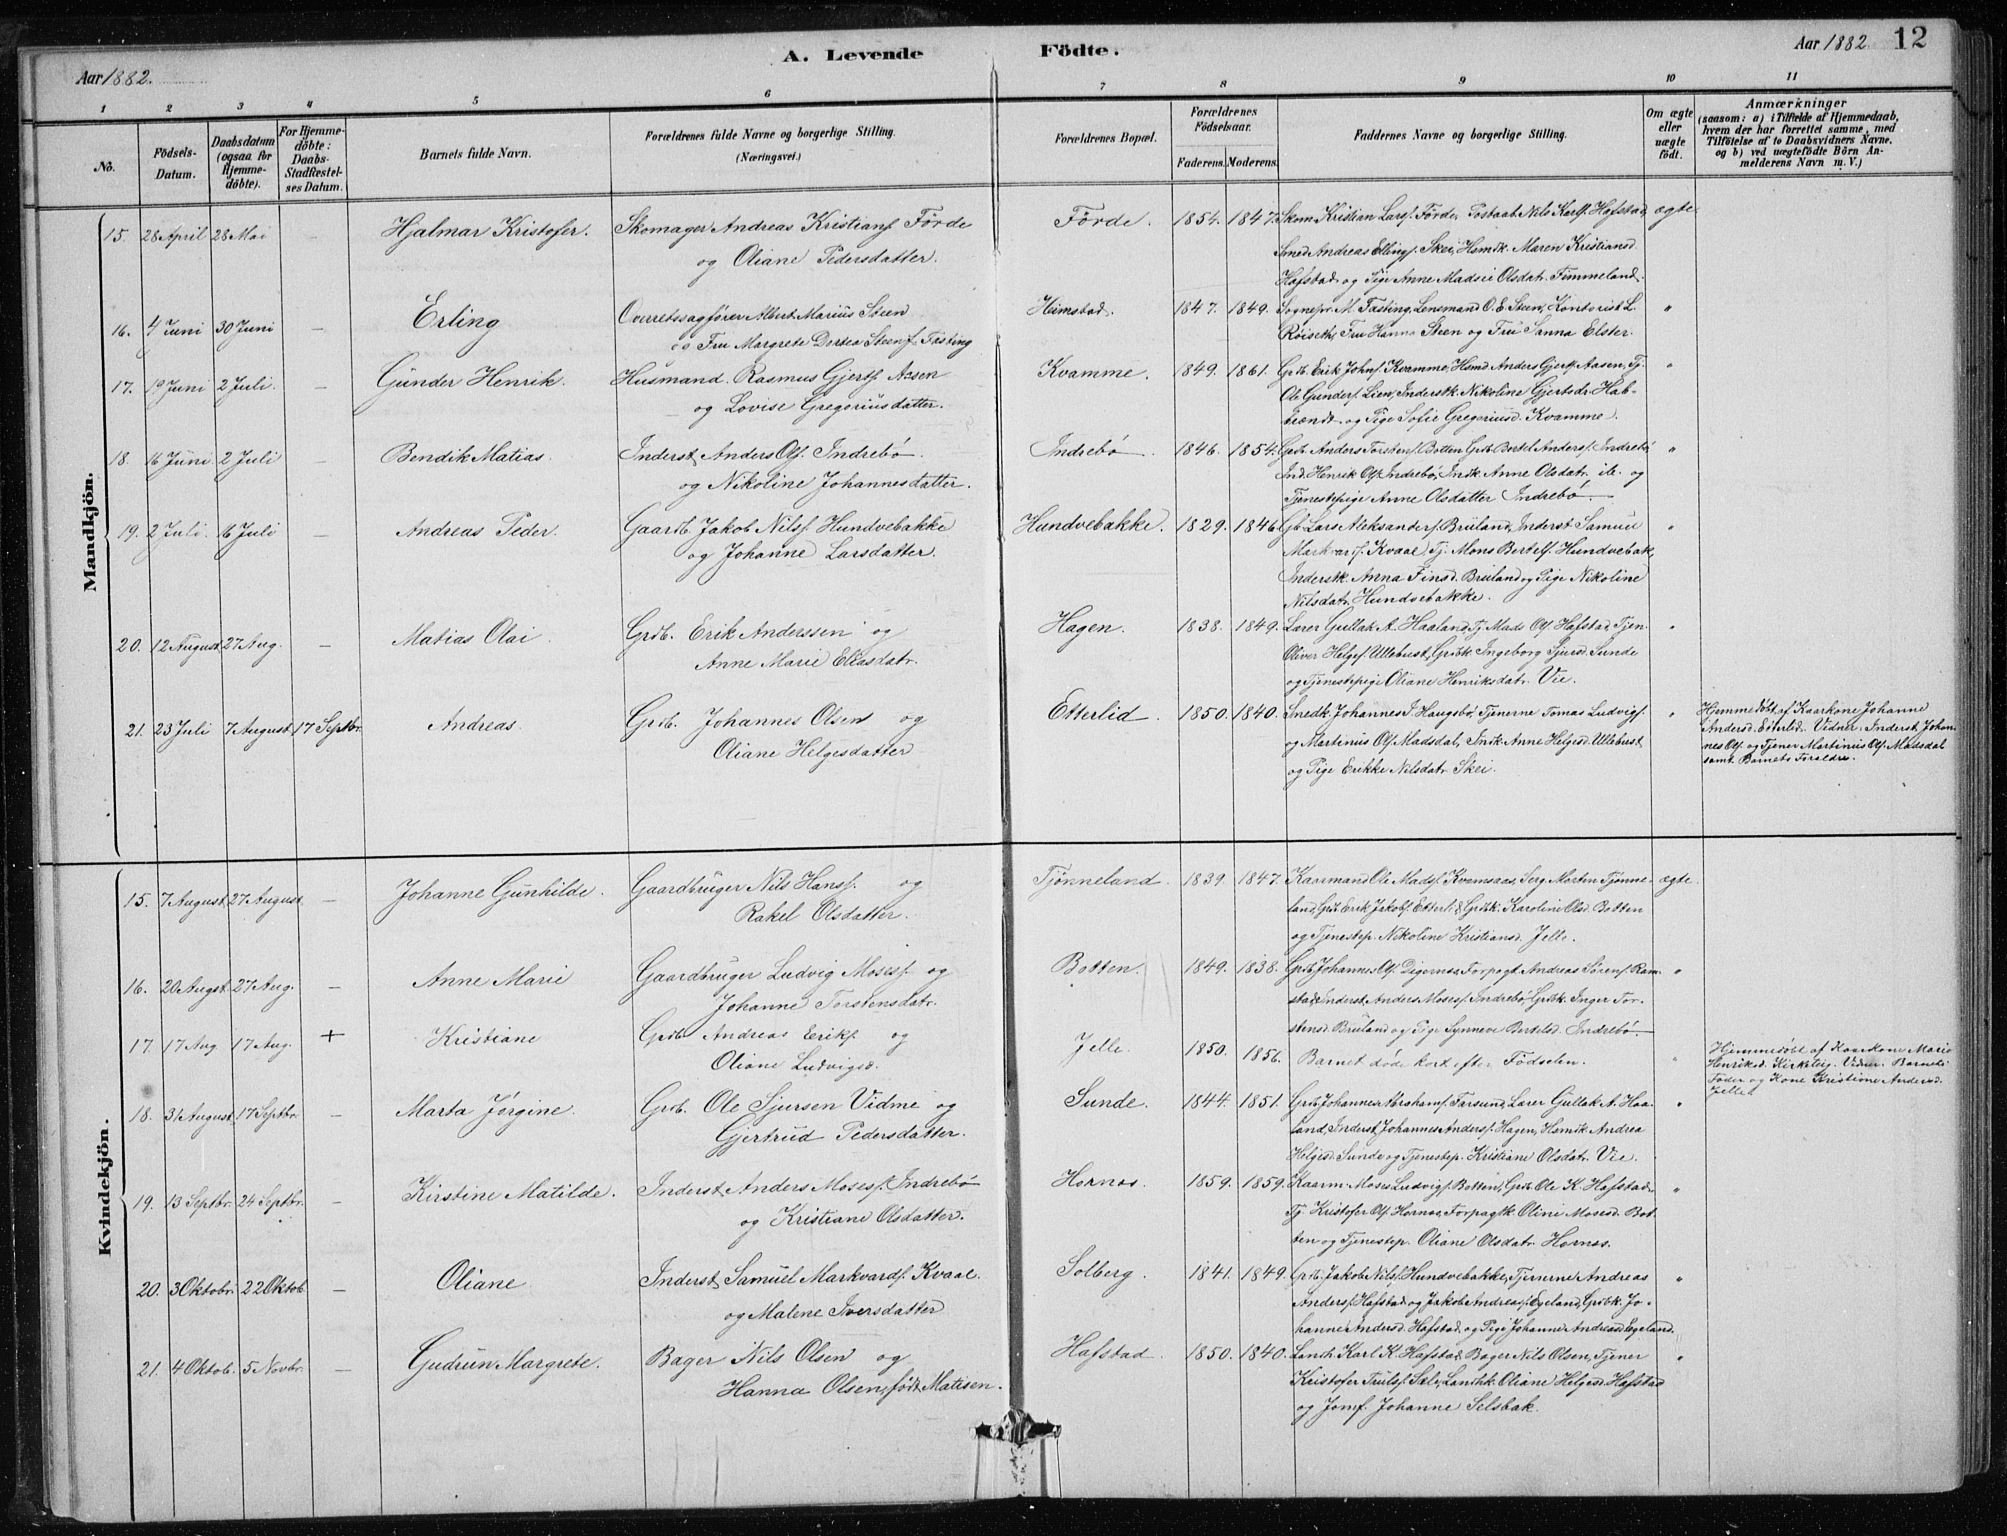 Aar 1882.
A. Levende Födte.
Aar 1882 12
1 2 3 4 5 6 7 8 9 10 11
No.
Födsels-Datum.
Daabsdatum (ogsaa for Hjemme-döbte).
For Hjemme-döbte: Daabs-Stadfæstel-ses Datum.
Barnets fulde Navn.
Forældrenes fulde Navne og borgerlige Stilling.
(Næringsvei.)
Forældrenes Bopæl.
Forældrenes Födselsaar.
Faderens. Moderens.
Faddernes Navne og borgerlige Stilling.
Om ægte eller uægte födt.
Anmærkninger
(saasom: a) i Tilfælde af Hjemmedaab,
hvem der har forrettet samme, med
Tilföielse af to Daabsvidners Navne,
og b) ved uægtefödte Börn An-
melderens Navn m. V.)
Mandkjön.
15. 28 April 28 Mai — Hjalmar Kristofer. Skomager Andreas Kristians. Förde Förde. 1854. 1847. Skom. Kristian Lars. Förde, Postaab. Nils Karls. Hafstad, ægte.
og Oliane Pedersdatter. Smed Andreas Ellings. Skei, Hsmdk. Maren Kristiansd.
Hafstad og Pige Anne Madsie Olsdatr. Fimmeland.
16. 4 Juni 30 Juni — Erling Overretssagfører Albert Marius Steen Heimstad. 1847. 1849. Sognepr. M. Fasting, Lensmand O. E. Steen, Kontorist L. "
og Fru Margrete Dortea Steen f. Fasting Röiseth, Fru Hanna Steen og Fru Sanna Elster.
17. 19 Juni 2 Juli. — Gunder Henrik. Husmand Rasmus Gjerts. Aasen Kvamme. 1849. 1861. Grdb. Erik Johns. Kvamme, Hsmd. Anders Gjerts. Aasen, Tj. "
og Lovise Gregoriusdatter. Ole Gunders. Lien, Inderstk. Nikoline Gjertsdr. Hab-
brændt og Pige Sofie Gregoriusd. Kvamme.
18. 16 Juni 2 Juli — Bendik Matias. Inderst Anders Ols. Indrebö Indrebö 1846. 1854. Grdb. Anders Torstens. Botten, Grdb. Bertel Anders. Indrebö, "
og Nikoline Johannesdatter. Ind. Henrik Ols. Indrebö, Indk. Anne Olsdatr. ib. og
Tjenestepige Anne Olsdatter Indrebö.
19. 2 Juli. 16 Juli — Andreas Peder. Gaardb. Jakob Nils. Hundvebakke Hundvebakke. 1829. 1846. Gb. Lars Aleksanders. Bruland, Inderst Samuel "
og Johanne Larsdatter. Markvards. Kvaal, Tj. Mons Bertels. Hundvebak,
Inderstk. Anna Finsd. Bruland og Pige Nikoline
Nilsdatr. Hundvebakke.
20. 12 August 27 Aug. — Matias Olai. Grdb. Erik Anderssen og Hagen. 1838. 1849. Lærer Gullak A. Haaland, Tj. Mads Ols. Hafstad, Tjen. "
Anne Marie Eliasdatr. Oliver Helges. Ullebust, Grdbk. Ingeborg Sjursd. Sunde
og Tjenestepige Oliane Henriksdatr. Vie.
21. 23 Juli 7 August 17 Septbr. Andreas. Grdb. Johannes Olsen og Etterlid. 1850. 1840. Snedk. Johannes J. Haugsbö, Tjenerne Tomas Ludvigs. " Hjemmedöbt af Kaarkone Johanne
Oliane Helgesdatter og Martinus Ols. Madsdal, Indk. Anne Helgesd. Ullebust Andersd. Etterlid. Vidner: Inderst Johan-
og Pige Erikke Nilsdatr. Skei. nes Ols. og Tjener Martinus Ols. Madsdal
samt Barnets Forældre.
Kvindekjön.
15. 7 August. 27 August. — Johanne Gunhilde. Gaardbruger Nils Hans. og Tjönneland. 1839. 1847. Kaarmand Ole Mads. Kvamsaas, Serg. Morten Tjönne- ægte.
Rakel Olsdatter. land, Grdb. Erik Jakobs. Etterlid, Grdbk. Karoline Olsd. Botten
og Tjenestep. Nikoline Kristiansd. Jelle.
16. 20 Augst. 27 Aug. — Anne Marie Gaardbruger Ludvig Moses. og Botten. 1849. 1838. Grdb. Johannes Ols. Digernes, Forpagt. Andreas Sörens. Ram- "
Johanne Torstensdatr. stad, Inderst Anders Moses. Indrebö, Grdbk. Inger Tor-
stensd. Bruland og Pige Synneve Bertelsd. Indrebö.
17. 17 Aug. 17 Aug. + Kristiane Grdb. Andreas Eriks. og Jelle. 1850. 1856. Barnet döde kort efter Födselen. " Hjemmedöbt af Kaarkone Marie
Oliane Ludvigsd. Henriksd. Kirkelig. Vidner: Barnets
Fader og Kone Kristine Andersd.
Jelle.
18. 31 August 17 Septbr. — Marta Jørgine. Grdb. Ole Sjursen Vidme og Sunde. 1844. 1851. Grdb. Johannes Abrahams. Farsund, Lærer Gullak A. Haa- "
Gjertrud Pedersdatter. land, Inderst Johannes Anders. Hagen, Hsmdk. Andrea
Helgesd. Sunde og Tjenestep. Kristiane Olsdatr. Vie.
19. 13 Septbr. 24 Septbr. — Kirstine Matilde. Inderst Anders Moses. Indrebö Hornes. 1859. 1859. Kaarm. Moses Ludvigs. Botten, Grdb. Ole K. Hafstad, "
og Kristiane Olsdatter. Tj. Kristofer Ols. Hornes, Forpagtk. Oline Mosesd. Bot-
ten og Tjenestep. Oliane Olsdatr. Hornes.
20. 3 Oktobr. 22 Oktob. — Oliane Inderst Samuel Markvards. Kvaal. Solberg. 1841. 1849. Grdb. Jakob Nils. Hundvebakke, Tjenerne Andreas "
og Malene Iversdatter Anders. Hafstad og Jakob Andreas. Egeland, Grdbk. Jo-
hanne Andersd. Hafstad og Pige Johanne Andreasd. Egeland.
21. 4 Oktob. 5 Novbr. — Gudrun Margrete. Bager Nils Olsen og Hafstad. 1850. 1840. Landh. Karl K. Hafstad, Bager Nils Olsen, Tjener "
Hanna Olsen, födt Matisen. Kristofer Truls. Sele, Landhk. Oliane Helgesd. Hafstad
og Jomf. Johanne Selsbak.